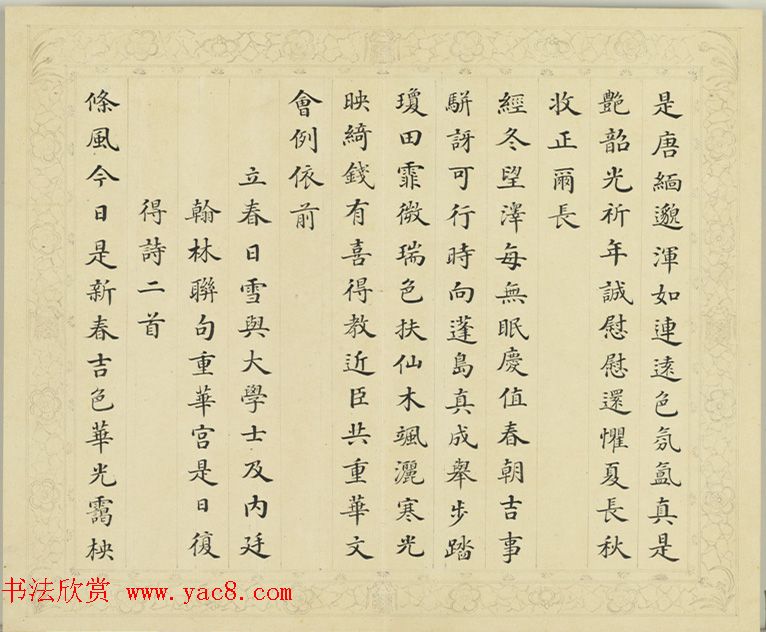 是唐緬邈渾如連遠色氛氳真是
艷韶光祈年誠慰慰還懼夏長秋
收正爾長
經冬望澤每無眠慶值春朝吉事
駢訝可行時向蓬島真成舉步踏
瓊田霏微瑞色扶仙木颯灑寒光
映綺錢有喜得教近臣共重華文
會例依前
立春日雪與大學士及內廷
翰林聯句重華宮是日復
得詩二首
條風今日是新春吉色華光靄柍
书法欣赏 www.yac8.com